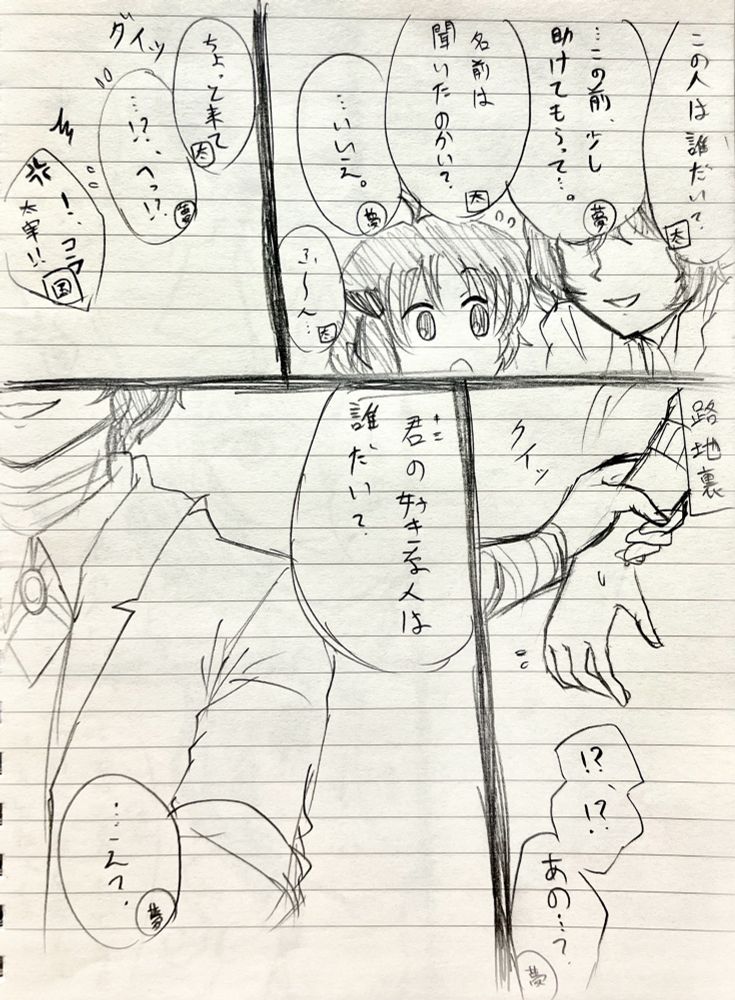 この人は誰だい?
太
…この前、少し
助けてもらって…。
夢
名前は
聞いたのかい?
太
…いいえ。
夢
ふ〜ん…
太
ちょっと来て
太
グイッ
…!?、へっ!?
夢
!、コラ
太宰!!
国
路地裏
クイッ
!?
!?
あの…?
夢
君の好きな人は
キミ
誰だい?
…こえ?
夢